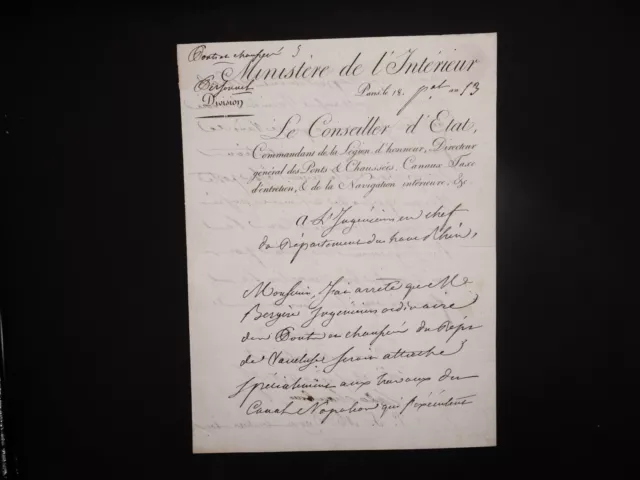 Ponts et chaussées
Personnel
Division
Ministère de l'Intérieur
Paris le 18. pal an 13
Le Conseiller d'Etat,
Commandant de la Légion d'honneur, Directeur
général des Ponts & Chaussées, Canaux, Taxe
d'entretien, & de la Navigation intérieure, &c
A L'Ingénieur en chef
du Département du haut Rhin,
Monsieur, J'ai arrêté que M.
Bergère Ingénieur ordinaire
des Ponts et chaussées du Dépt
de Vaucluse serait attaché
spécialement aux travaux du
Canal Napoléon qui s'exécutent